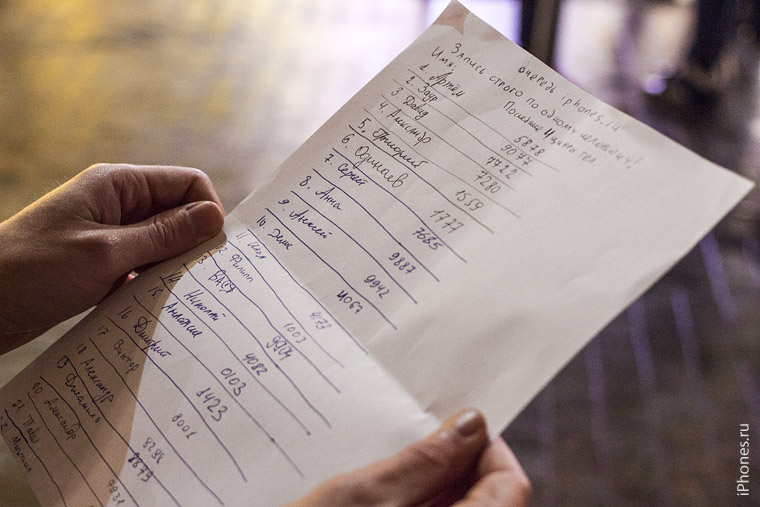 очередь iphones.ru
Запись строго по одному человеку!
Имя: Последние 4 цифры тел
1. Артём 5878
2. Заур 9077
3. Давид 7722
4. Александр 7280
5. Григорий 1559
6. Одинаев 1777
7. Сергей 7685
8. Анна 9887
9. Алексей 9942
10. Денис 4067
11. Илья 473
12. Филипп 1003
13. ВАСЯ
14 Николай 4082
15. 0103
16 Дмитрий 1423
17 Виктор 8001
18 Александр 8296
19 Джамиль 8879
20 Александр 7931
21 Павел
22 Михаил
iPhones.ru